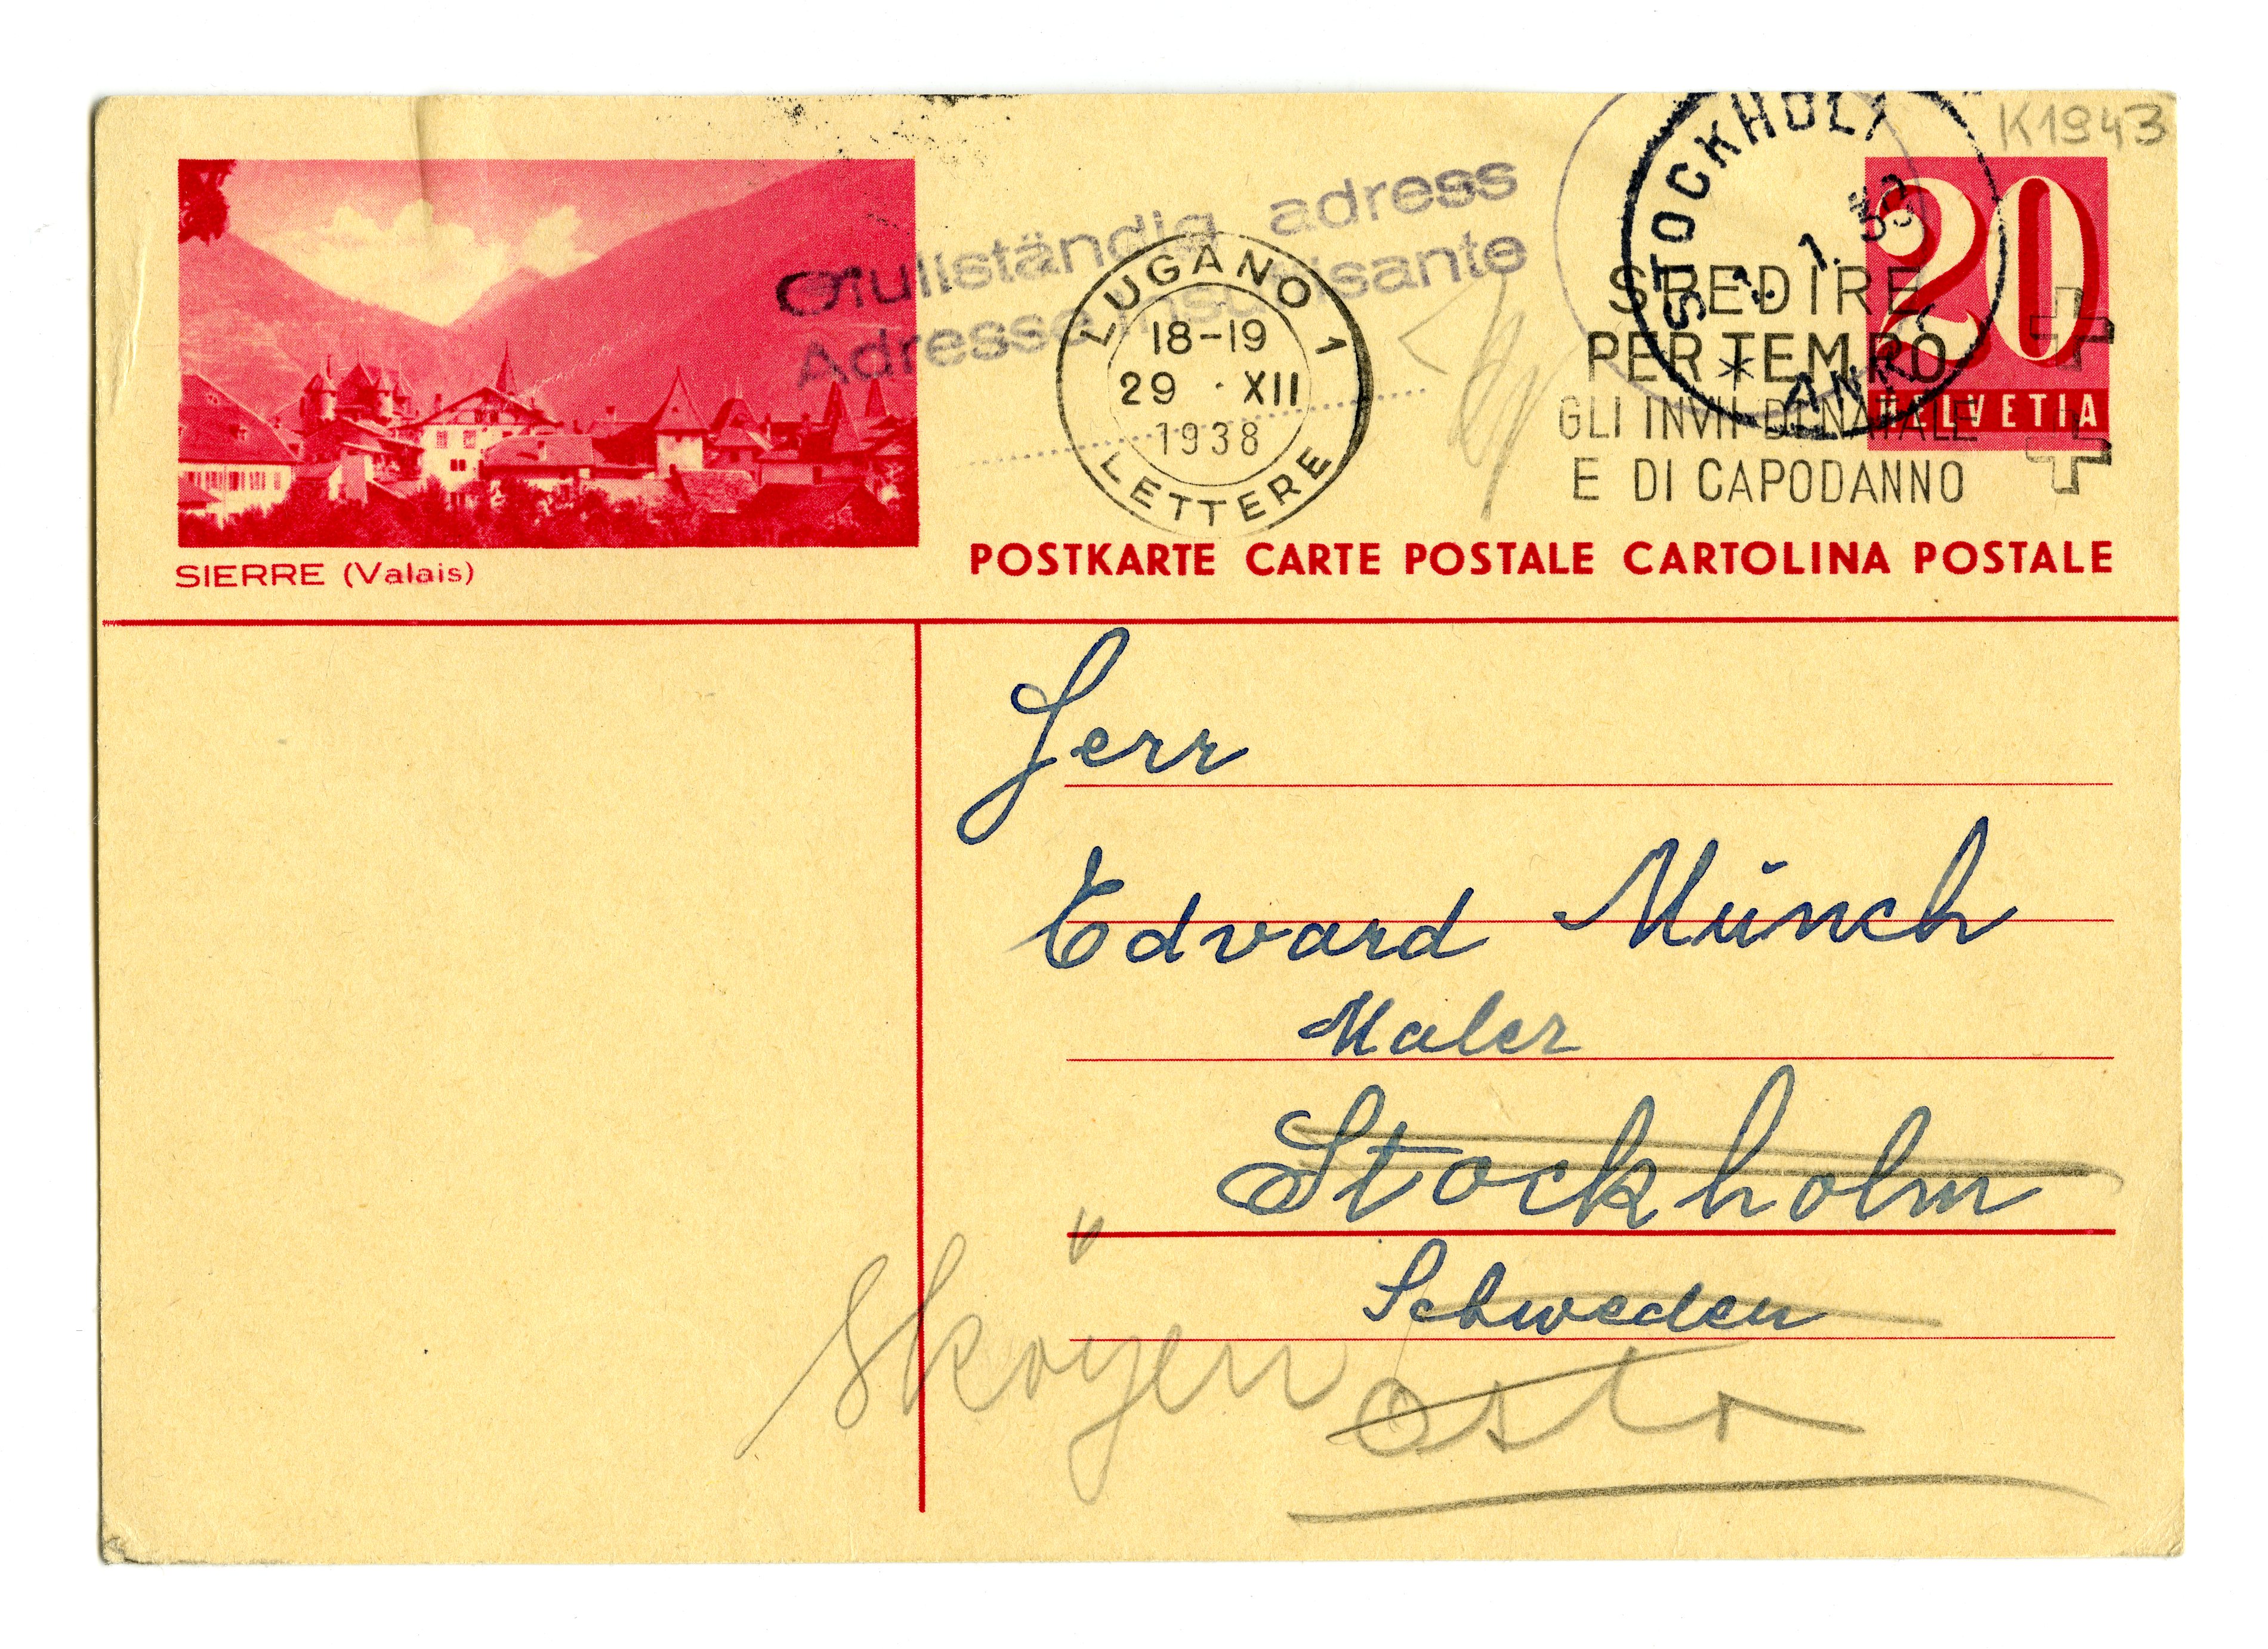 K1943
STOCKHOLM
1. 39
* ANK.
20
HELVETIA
Ofullständig adress
Adresse insuffisante
LUGANO 1
18-19
29 · XII
1938
LETTERE
SPEDIRE
PER TEMPO
GLI INVII DI NATALE
E DI CAPODANNO
SIERRE (Valais)
POSTKARTE CARTE POSTALE CARTOLINA POSTALE
Herr
Edvard Münch
Maler
Stockholm
Schweden
Sköyen
Oslo